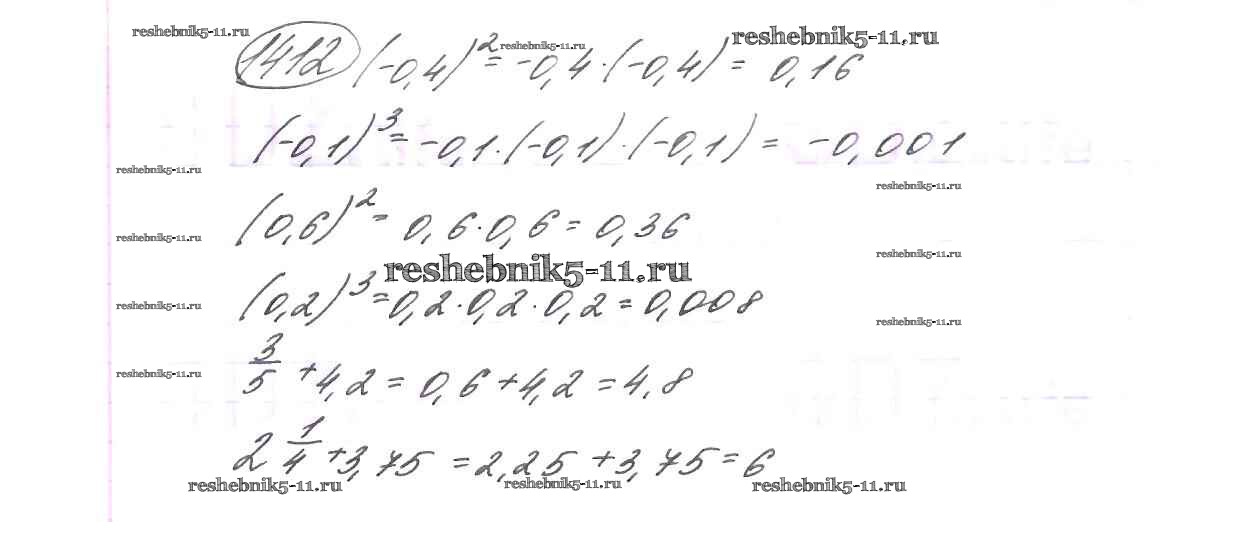 reshebnik5-11.ru reshebnik5-11.ru reshebnik5-11.ru
1412 (-0,4)² = -0,4·(-0,4) = 0,16
(-0,1)³ = -0,1·(-0,1)·(-0,1) = -0,001
reshebnik5-11.ru reshebnik5-11.ru
(0,6)² = 0,6·0,6 = 0,36
reshebnik5-11.ru reshebnik5-11.ru reshebnik5-11.ru
(0,2)³ = 0,2·0,2·0,2 = 0,008
reshebnik5-11.ru reshebnik5-11.ru
3/5 + 4,2 = 0,6 + 4,2 = 4,8
reshebnik5-11.ru
2 1/4 + 3,75 = 2,25 + 3,75 = 6
reshebnik5-11.ru reshebnik5-11.ru reshebnik5-11.ru